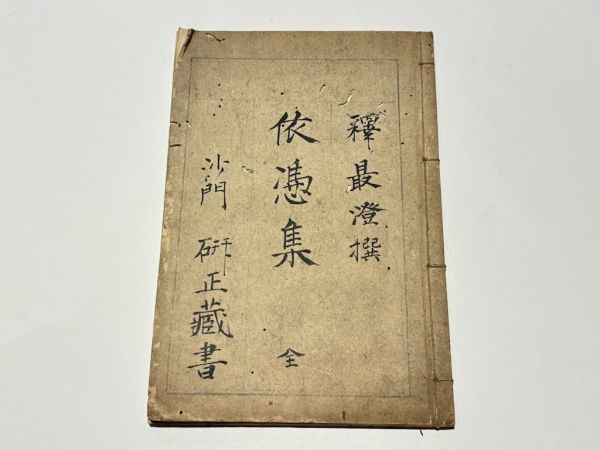 釋最澄撰
依憑集 全
沙門 研正藏書